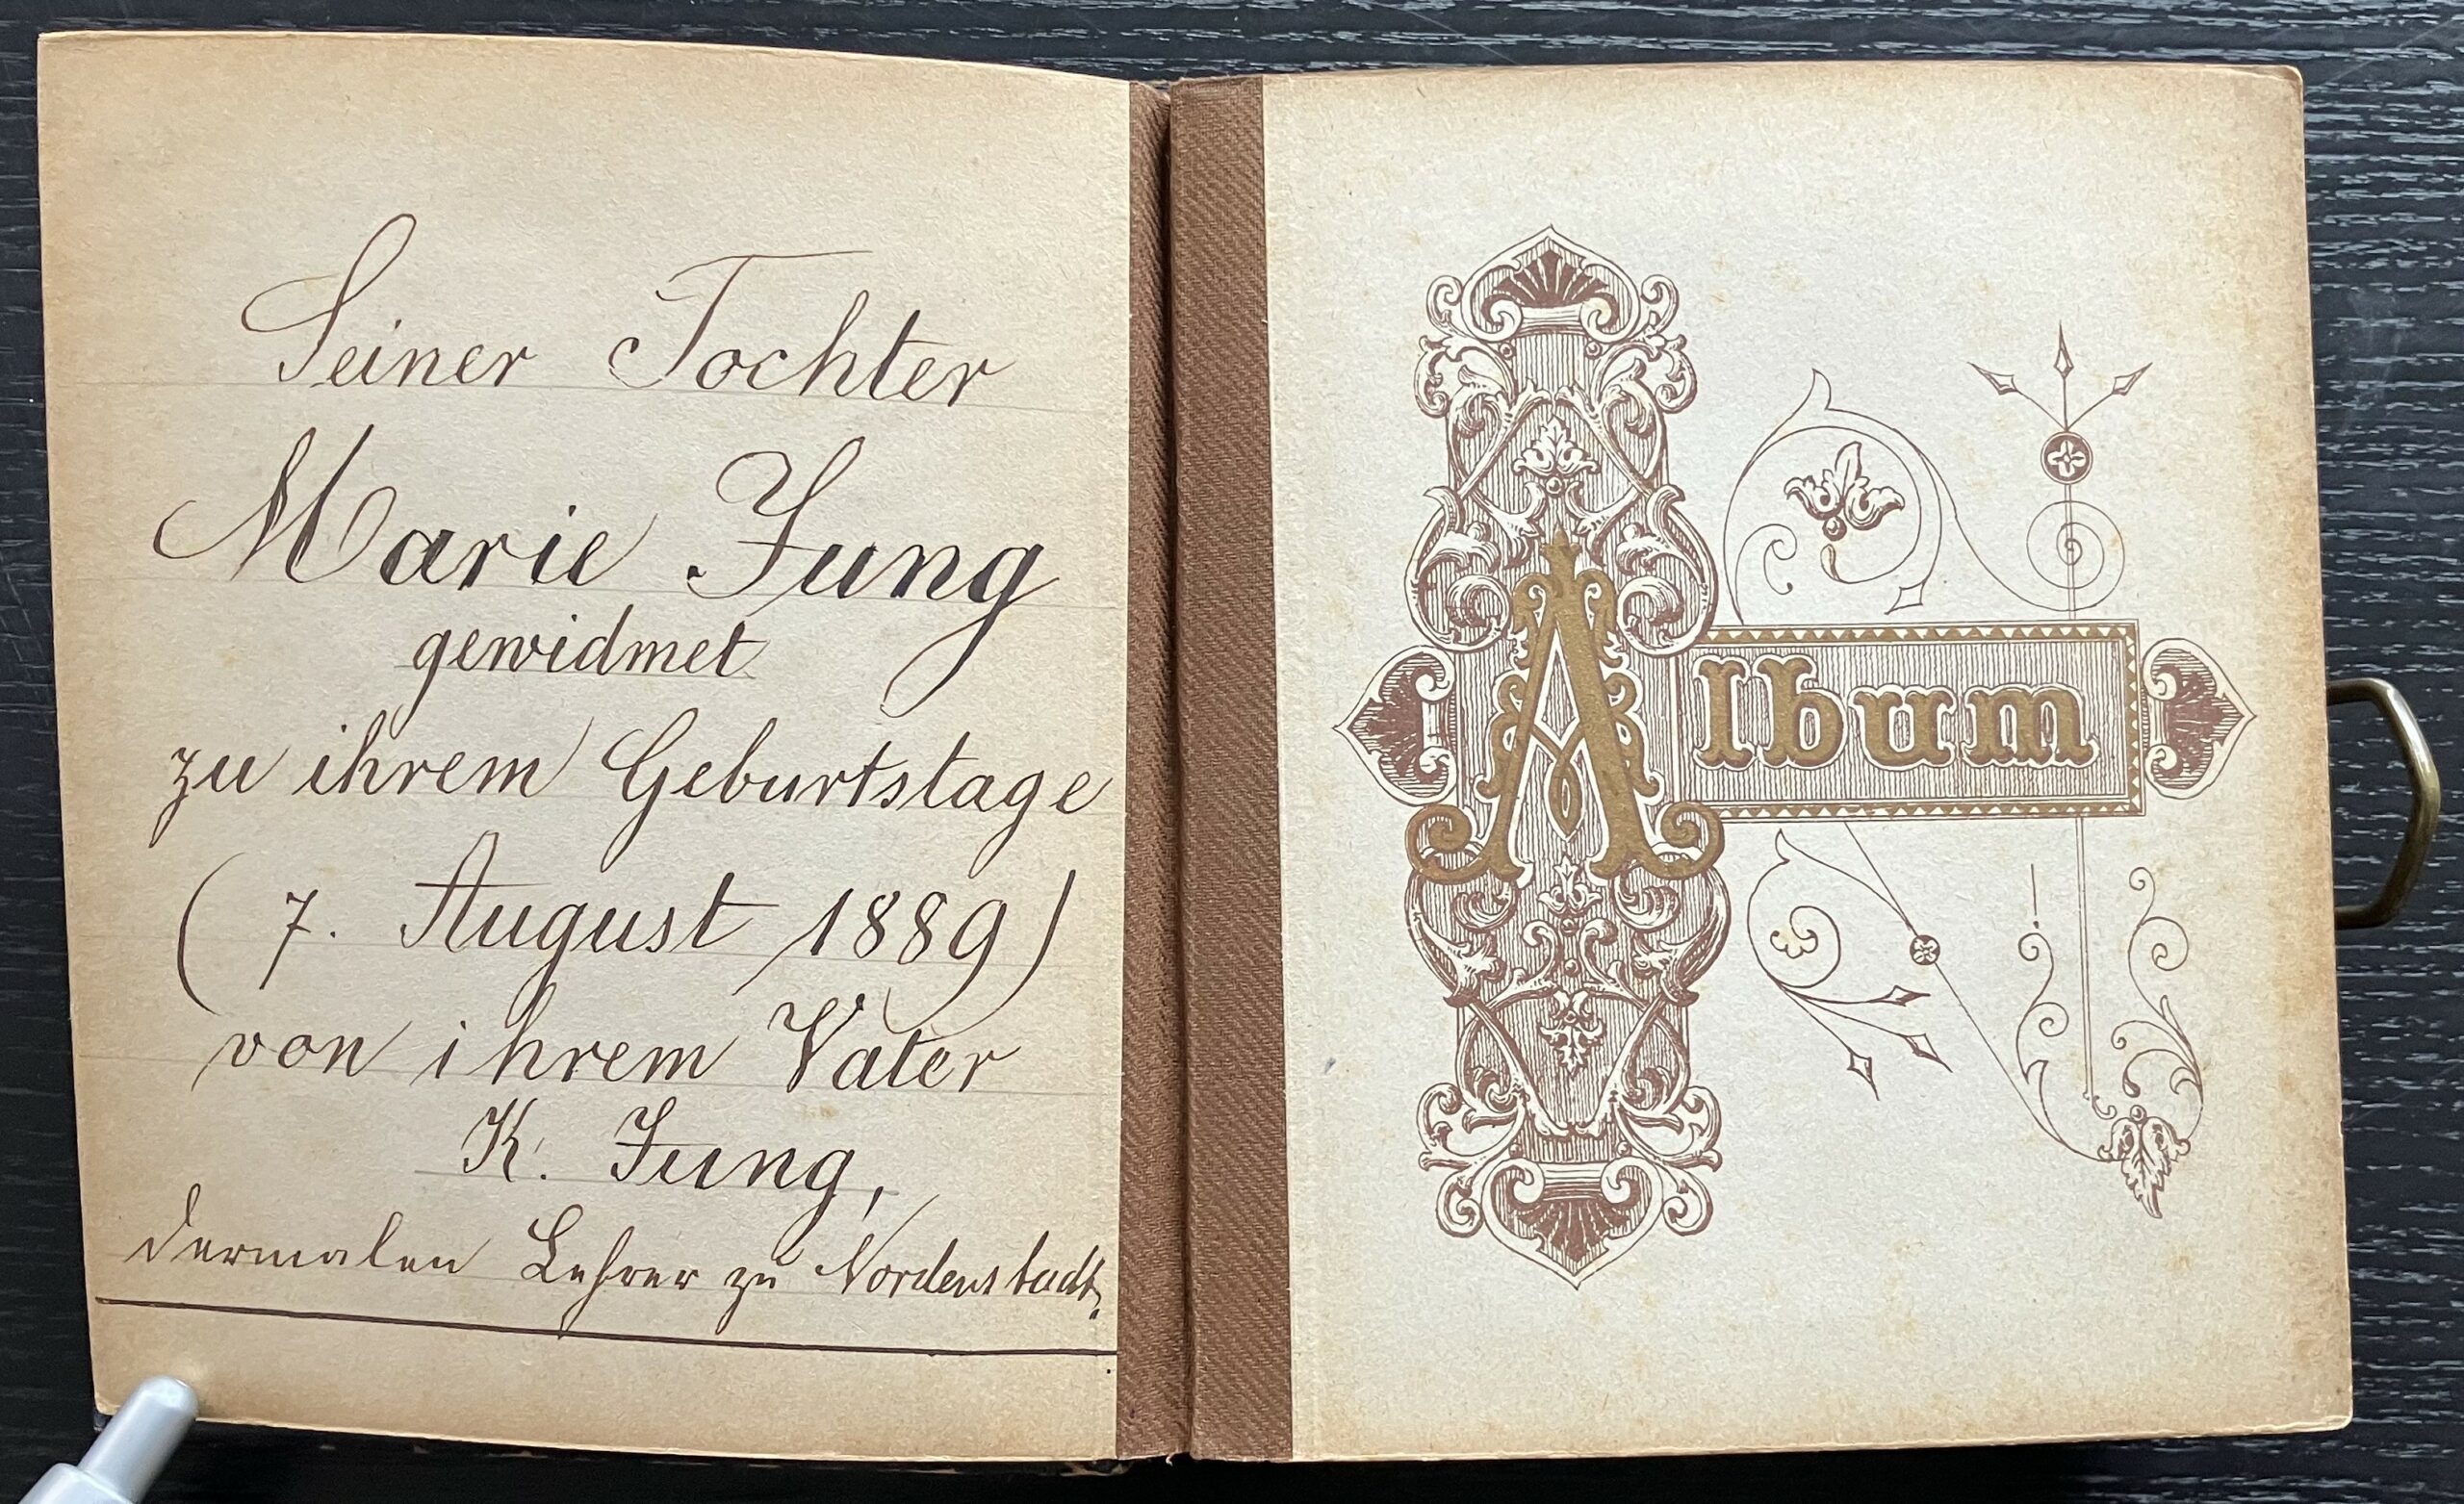 Seiner Tochter
Marie Jung
gewidmet
zu ihrem Geburtstage
(7. August 1889)
von ihrem Vater
K. Jung,
dermalen Lehrer zu Nordenstadt.
Album